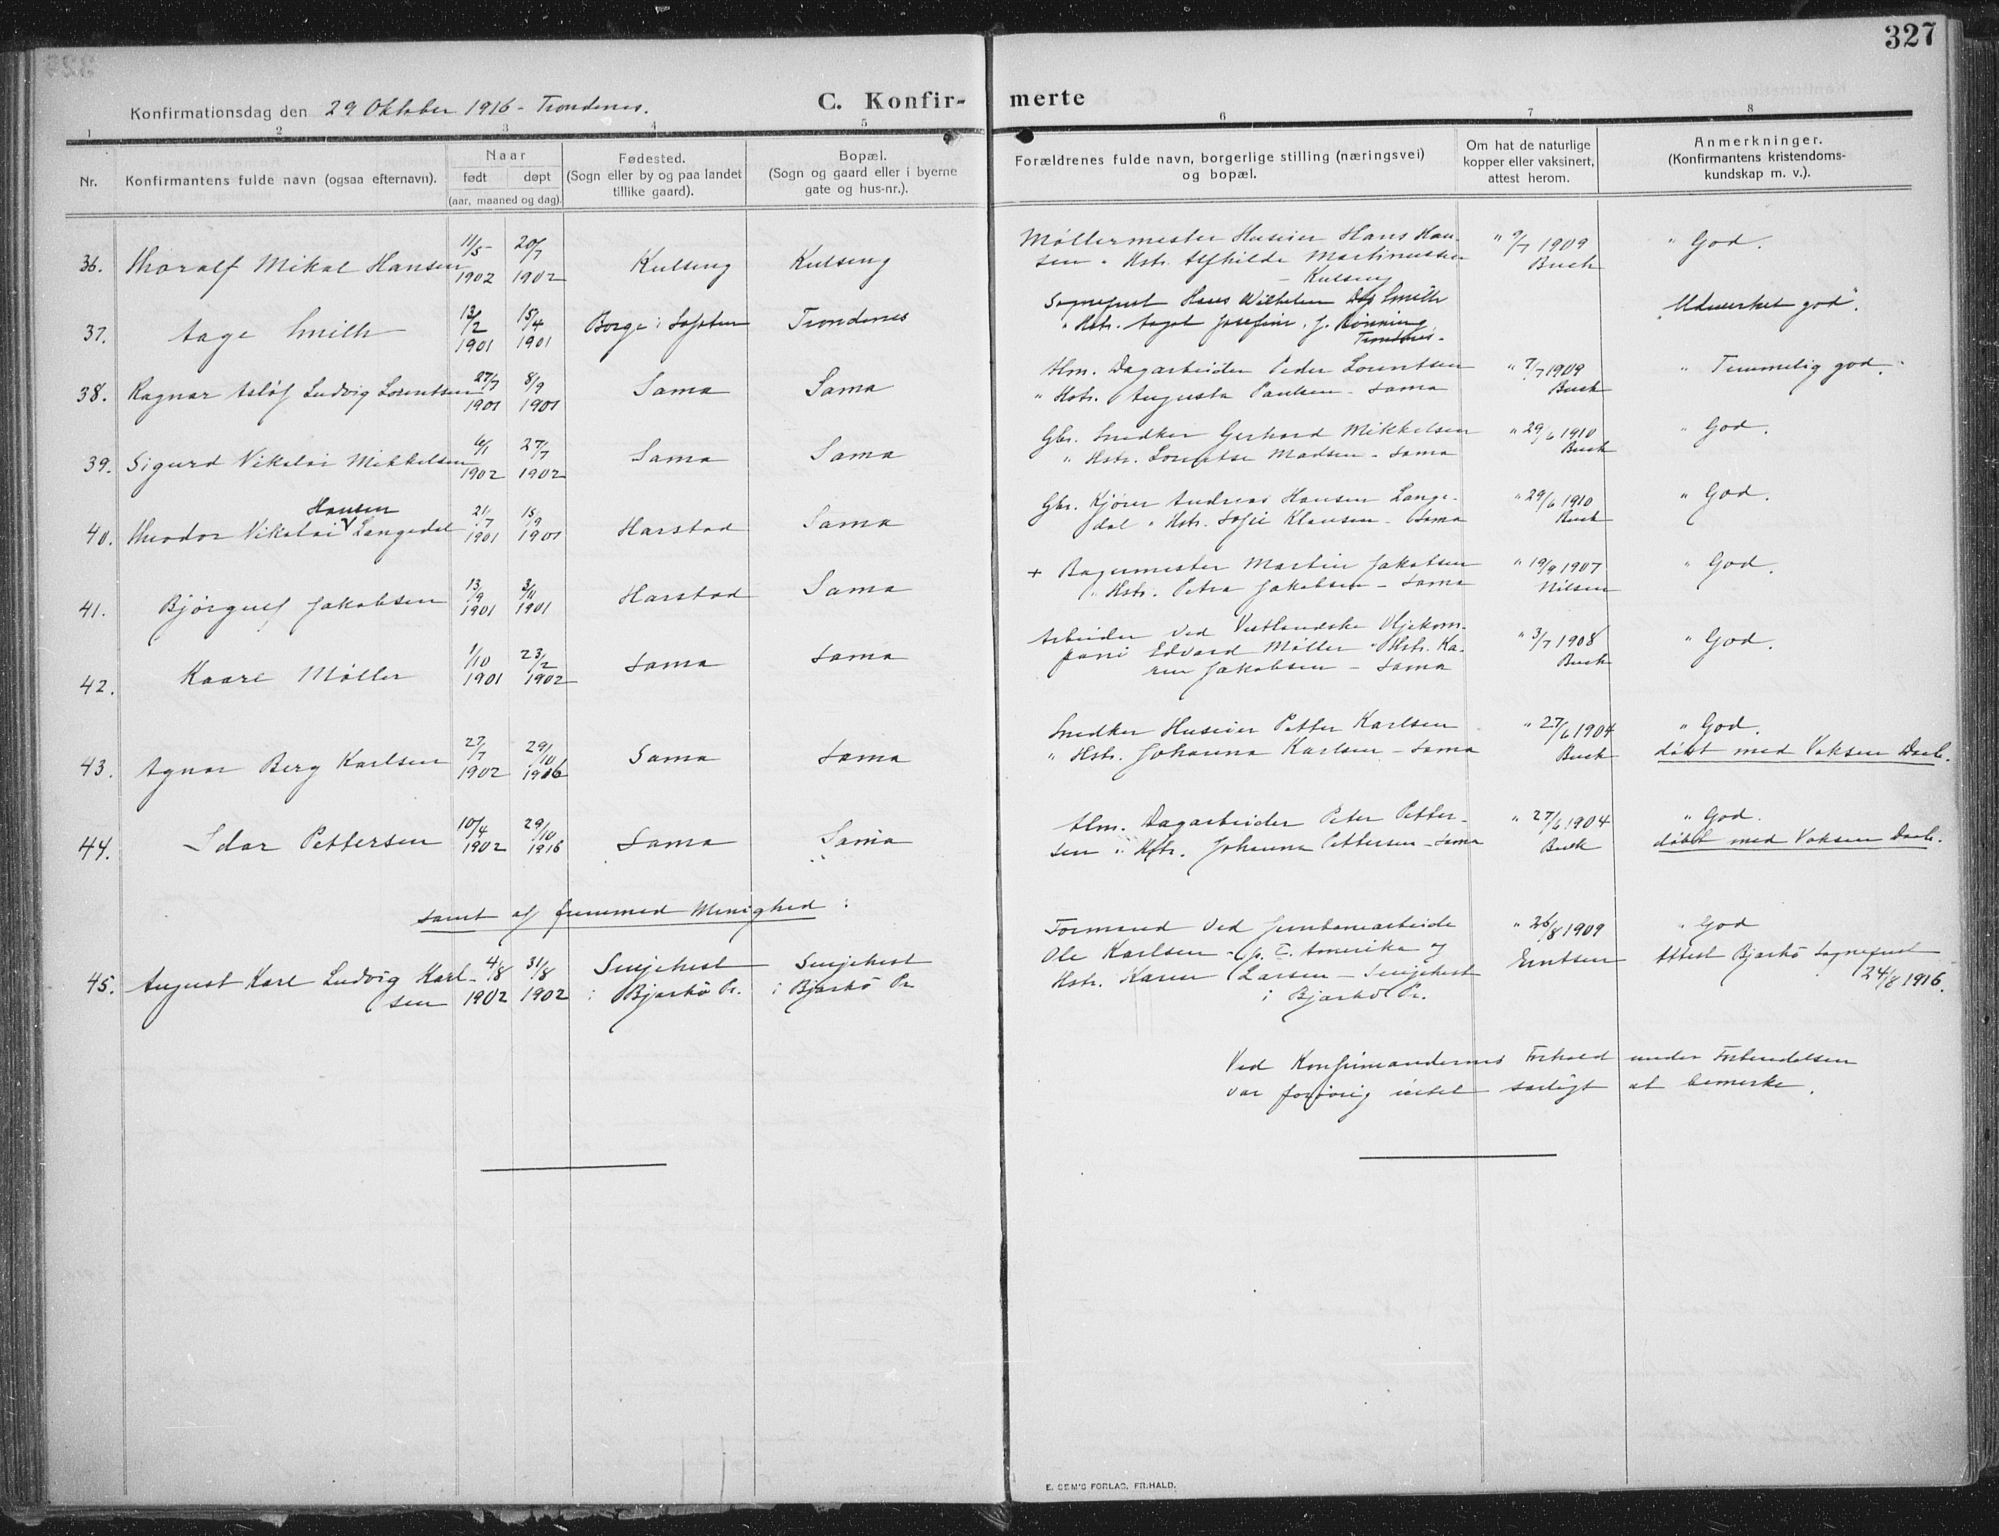 327
Konfirmationsdag den 29 Oktober 1916 - Trondenes.
C. Konfir- merte
1 2 3 4 5 6 7 8
Nr.
Konfirmantens fulde navn (ogsaa efternavn).
Naar
født døpt
(aar, maaned og dag).
Fødested.
(Sogn eller by og paa landet
tillike gaard).
Bopæl.
(Sogn og gaard eller i byerne
gate og hus-nr.).
Forældrenes fulde navn, borgerlige stilling (næringsvei)
og bopæl.
Om hat de naturlige
kopper eller vaksinert,
attest herom.
Anmerkninger.
(Konfirmantens kristendoms-
kundskap m. v.).
36. Thoralf Mikal Hansen 11/5 1902 20/7 1902 Kulseng Kulseng
Møllermester Huseier Hans Han-
sen " Hstr. Alfhilde Martinussen
Kulseng
" 9/7 1909
Buch
" God.
37. Aage Smith 13/2 1901 15/4 1901 Borge i Lofoten Trondenes
Sogneprest Hans Wilhelm Smith
" Hstr. Aagot Josefine, f. Rønning
Trondnes.
Udmerket god".
38. Ragnar Asløf Ludvig Lorentsen 27/7 1901 8/9 1901 Sama Sama
Hm. Dagarbeider Peder Lorentsen
" Hstr. Augusta Paulsen - Sama
" 7/7 1909
Buch
" Temmelig god.
39. Sigurd Nikolai Mikkelsen 6/1 1902 27/7 1902 Sama Sama
Gbr. Snedker Gerhard Mikkelsen
" Hstr. Lorentse Madsen - Sama
" 29/6 1910
Buch
" God.
Hansen
40. Theodor Nikolai V Langedal 21/7 1901 15/9 1901 Harstad Sama
Gbr. Kjører Andreas Hansen Lange-
dal " Hstr. Sofie Klausen - Sama
" 29/6 1910
Buch
" God.
41. Bjørgulf Jakobsen 13/9 1901 3/11 1901 Harstad Sama
+ Bagermester Martin Jakobsen
" Hstr. Petra Jakobsen - Sama
" 19/9 1907
Nilsen
" God.
42. Kaare Møller 1/10 1901 23/2 1902 Sama Sama
Arbeider ved Vestlandske Oljekom-
pani Edvard Møller " Hstr. Ka-
ren Jakobsen - Sama
" 3/7 1908
Buch
" God.
43. Agnar Berg Karlsen 27/7 1902 29/10 1916 Sama Sama
Snedker Huseier Petter Karlsen
" Hstr. Johanna Karlsen - Sama
" 27/6 1904
Buch
" God.
døbt med Voksen Daab.
44. Idar Pettersen 10/4 1902 29/10 1916 Sama Sama
Hm. Dagarbeider Peter Petter-
sen " Hstr. Johanna Pettersen - Sama
" 27/6 1904
Buch
" God.
døbt med Voksen Daab.
samt af fremmed Menighed:
45. August Karl Ludvig Karl-
sen 4/8 1902 31/8 1902
i Bjarkö Pr. i Bjarkö Pr
Formand ved Jernbanearbeide
Ole Karlsen - Amerika og
Hstr. Karen Larsen -
i Bjarkö Pr.
" 26/8 1909
" God
Attest Bjarkö Sogneprest
24/8 1916.
Ved Konfirmandernes Forhold under Forberedelsen
var forøvrig intet særligt at bemerke.
E. SEM'S FORLAG. FR.HALD.